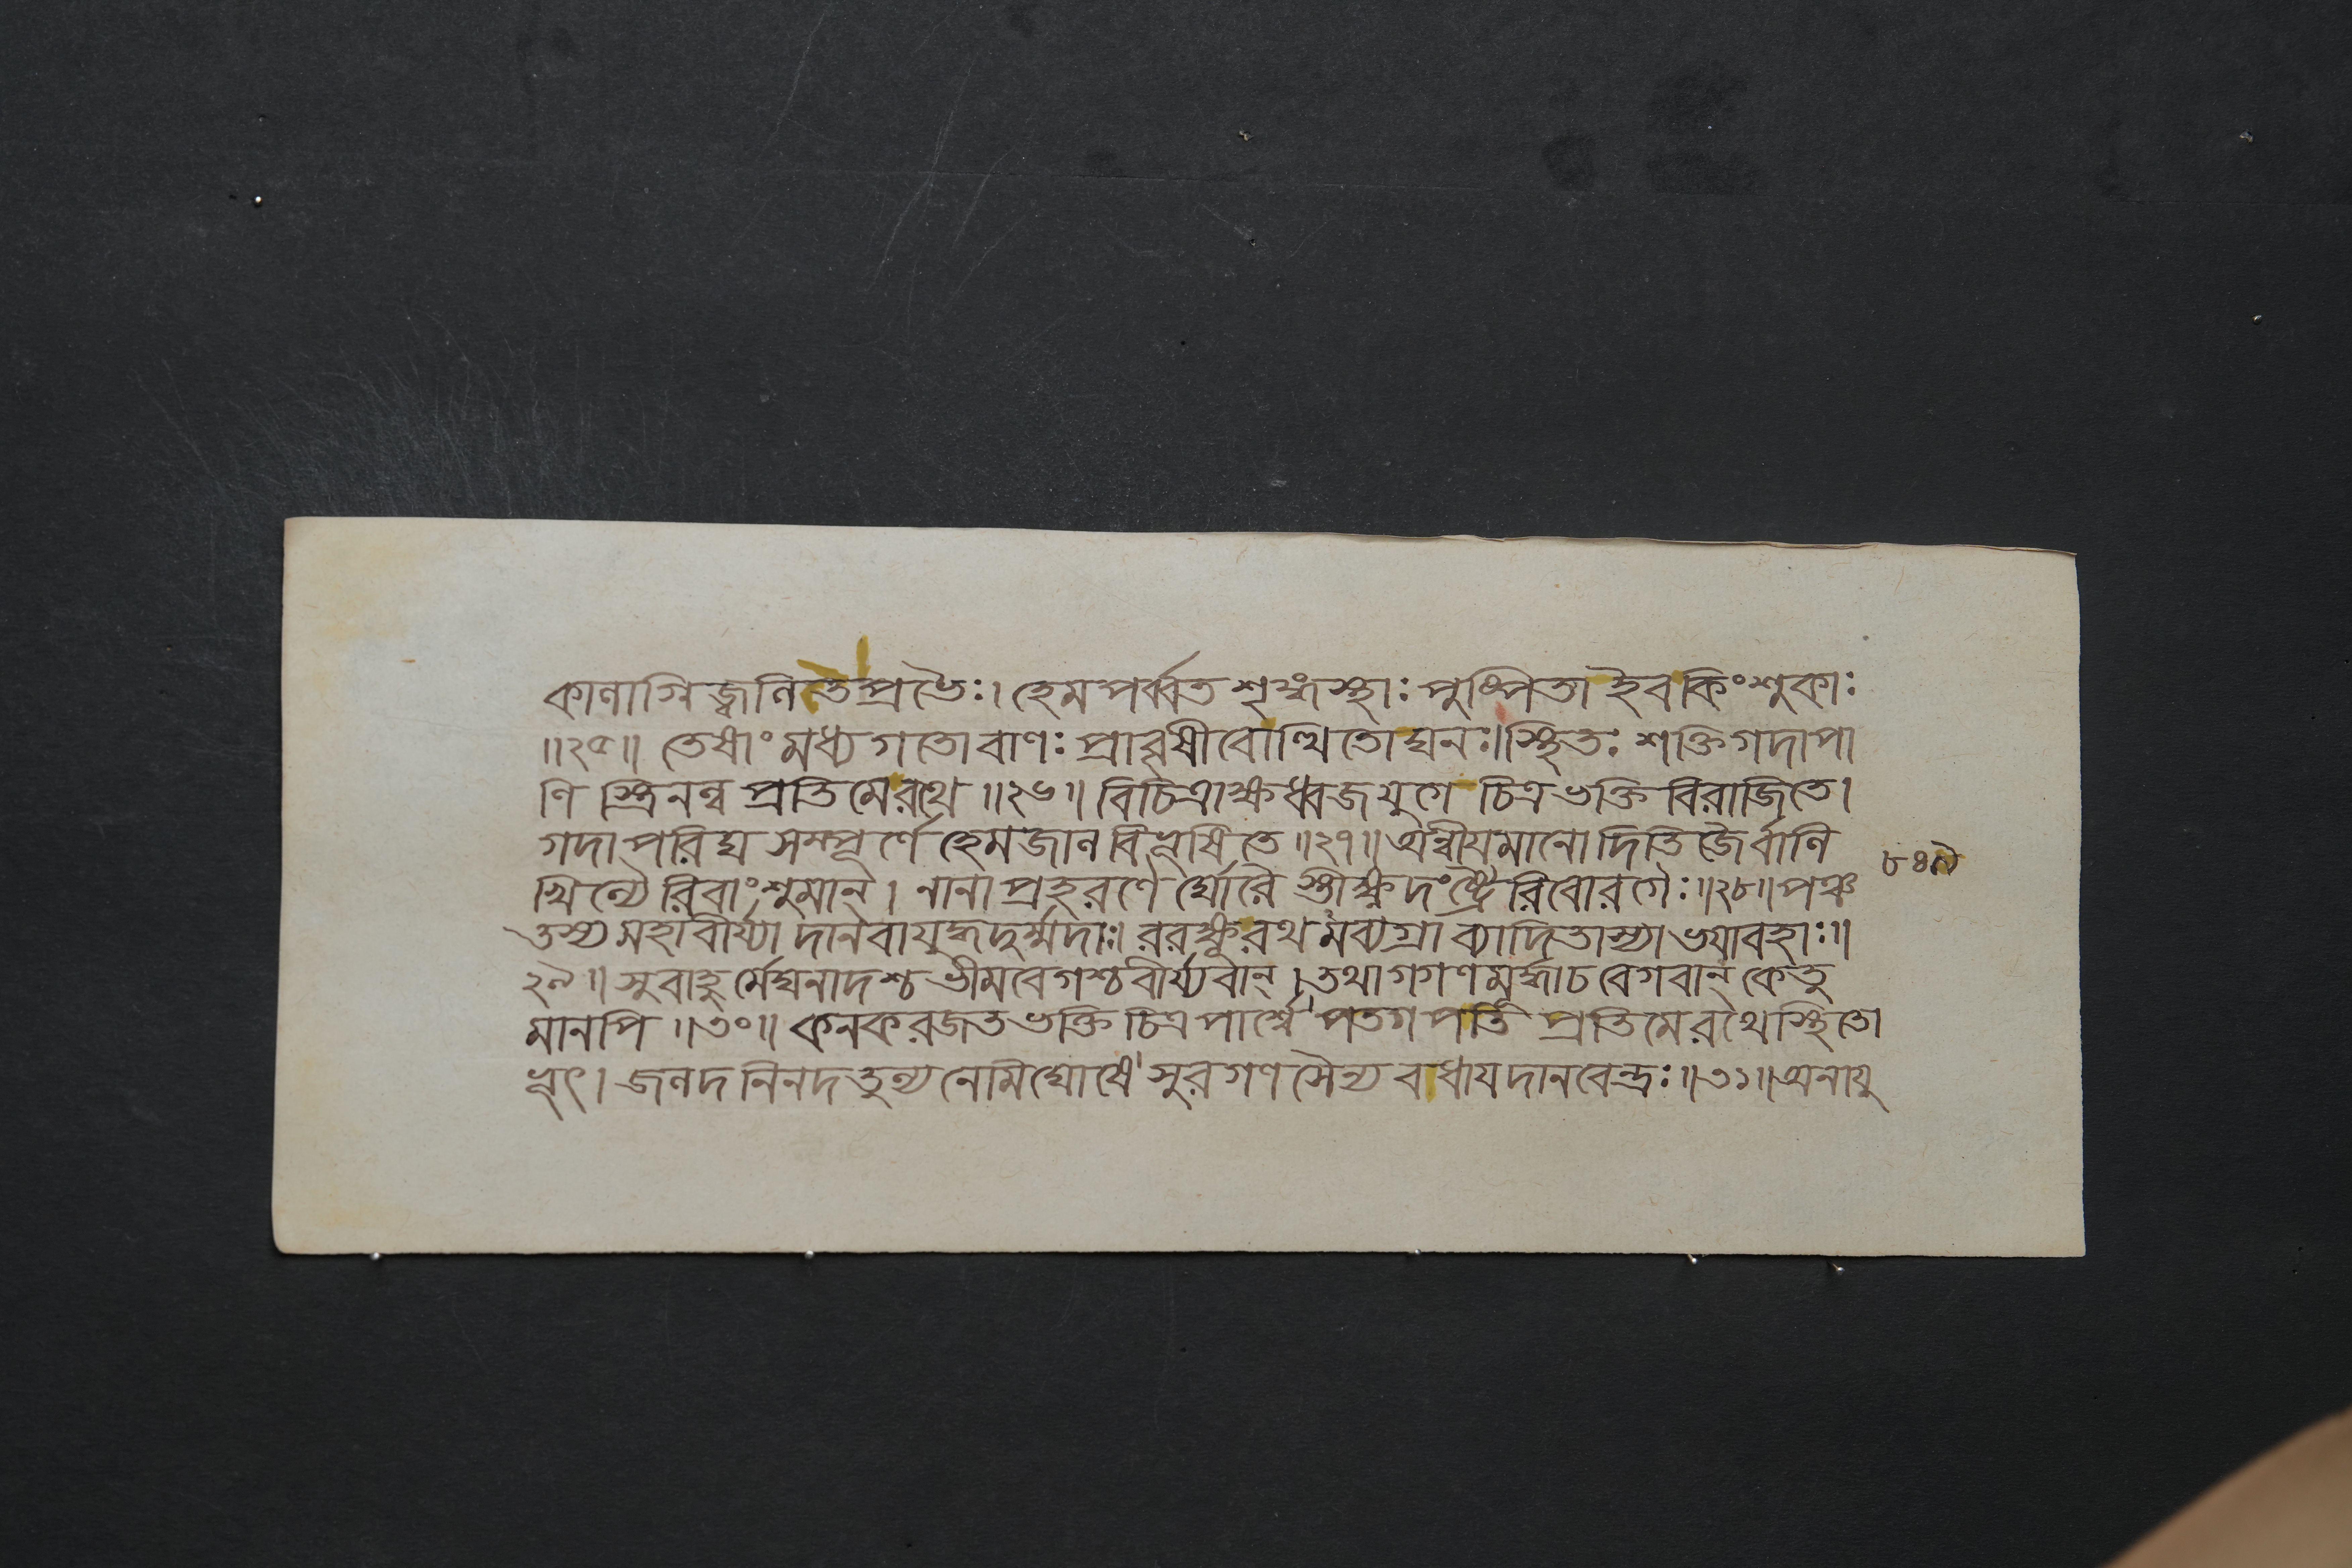 কালাগ্নিজ্বলিতপ্রভৈঃ। হেমপর্ব্বত শৃঙ্গস্থাঃ পুষ্পিতা ইব কিংশুকাঃ
॥২৫॥ তেষাং মধ্যগতো বাণঃ প্রাবৃষীবোত্থিতো ঘনঃ। স্থিতঃ শক্তিগদাপা
ণি স্ত্রিনল্ব প্রতিমে রথে ॥২৬॥ বিচিত্রাক্ষধ্বজযুগে চিত্রভক্তি বিরাজিতে।
গদাপরিঘ সম্পূর্ণে হেমজাল বিভূষিতে ॥২৭॥ অন্বীয়মানো দিতিজৈর্বালি
খিল্যৈরিবাংশুমান্। নানাপ্রহরণৈ র্ঘোরৈ স্তীক্ষ্ণদংষ্ট্রৈরিবোরগৈঃ॥২৮॥ পঞ্চ ৮৪৯
তস্য মহাবীর্য্যা দানবা যুদ্ধদুর্ম্মদাঃ। ররক্ষূরথমব্যগ্রা ব্যাদিতাস্যা ভয়াবহাঃ॥
২৯॥ সুবাহু র্মেঘনাদশ্চ ভীমবেগশ্চ বীর্য্যবান্। তথা গগণমূর্দ্ধাচ বেগবান্ কেতু
মানপি ॥৩০॥ কনকরজতভক্তি চিত্রপার্শ্বে পতগপতি প্রতিমে রথে স্থিতো
ভূৎ। জলদ নিনদতুল্য নেমিঘোষে সুরগণ সৈন্য বধায় দানবেন্দ্রঃ॥৩১॥ অনায়ু